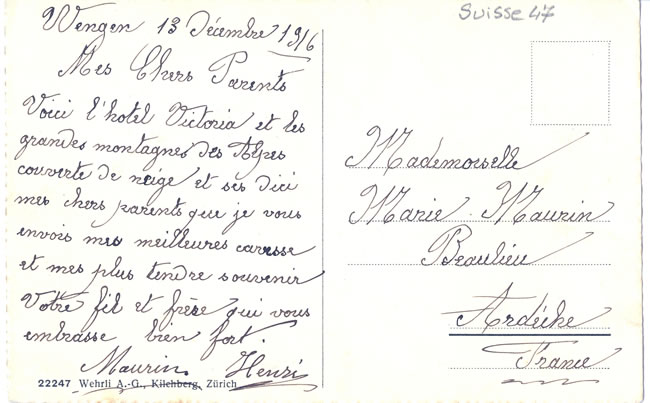 Suisse 47
Wengen 13 Décembre 1916
Mes Chers Parents
Voici l'hotel Victoria et les
grandes montagnes des Alpes
couverte de neige et ses dici
mes chers parents que je vous
envois mes meilleures caresse
et mes plus tendre souvenir
Votre fil et frère qui vous
embrasse bien fort.
Maurin Henri
22247 Wehrli A.-G., Kilchberg, Zürich
Mademoiselle
Marie Maurin
Beaulieu
Ardéche
France